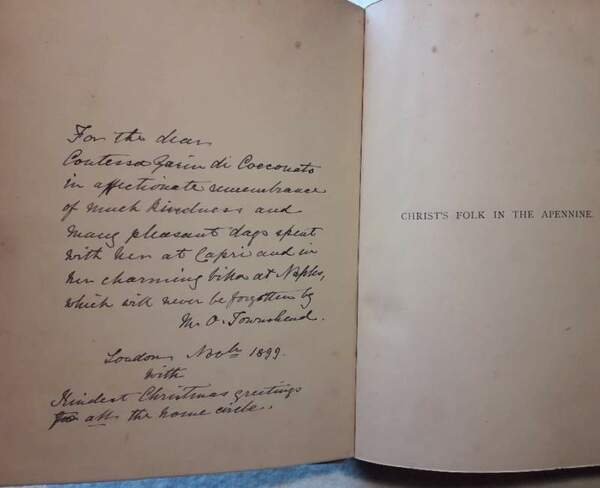 For the dear
Contessa Zarin di Cocconato
in affectionate remembrance
of much kindness and
many pleasant days spent
with her at Capri and in
her charming villa at Naples,
which will never be forgotten by
M. O. Townshend.
London, 1899.
with
Kindest Christmas greetings
for all the home circle.
CHRIST'S FOLK IN THE APENNINE.